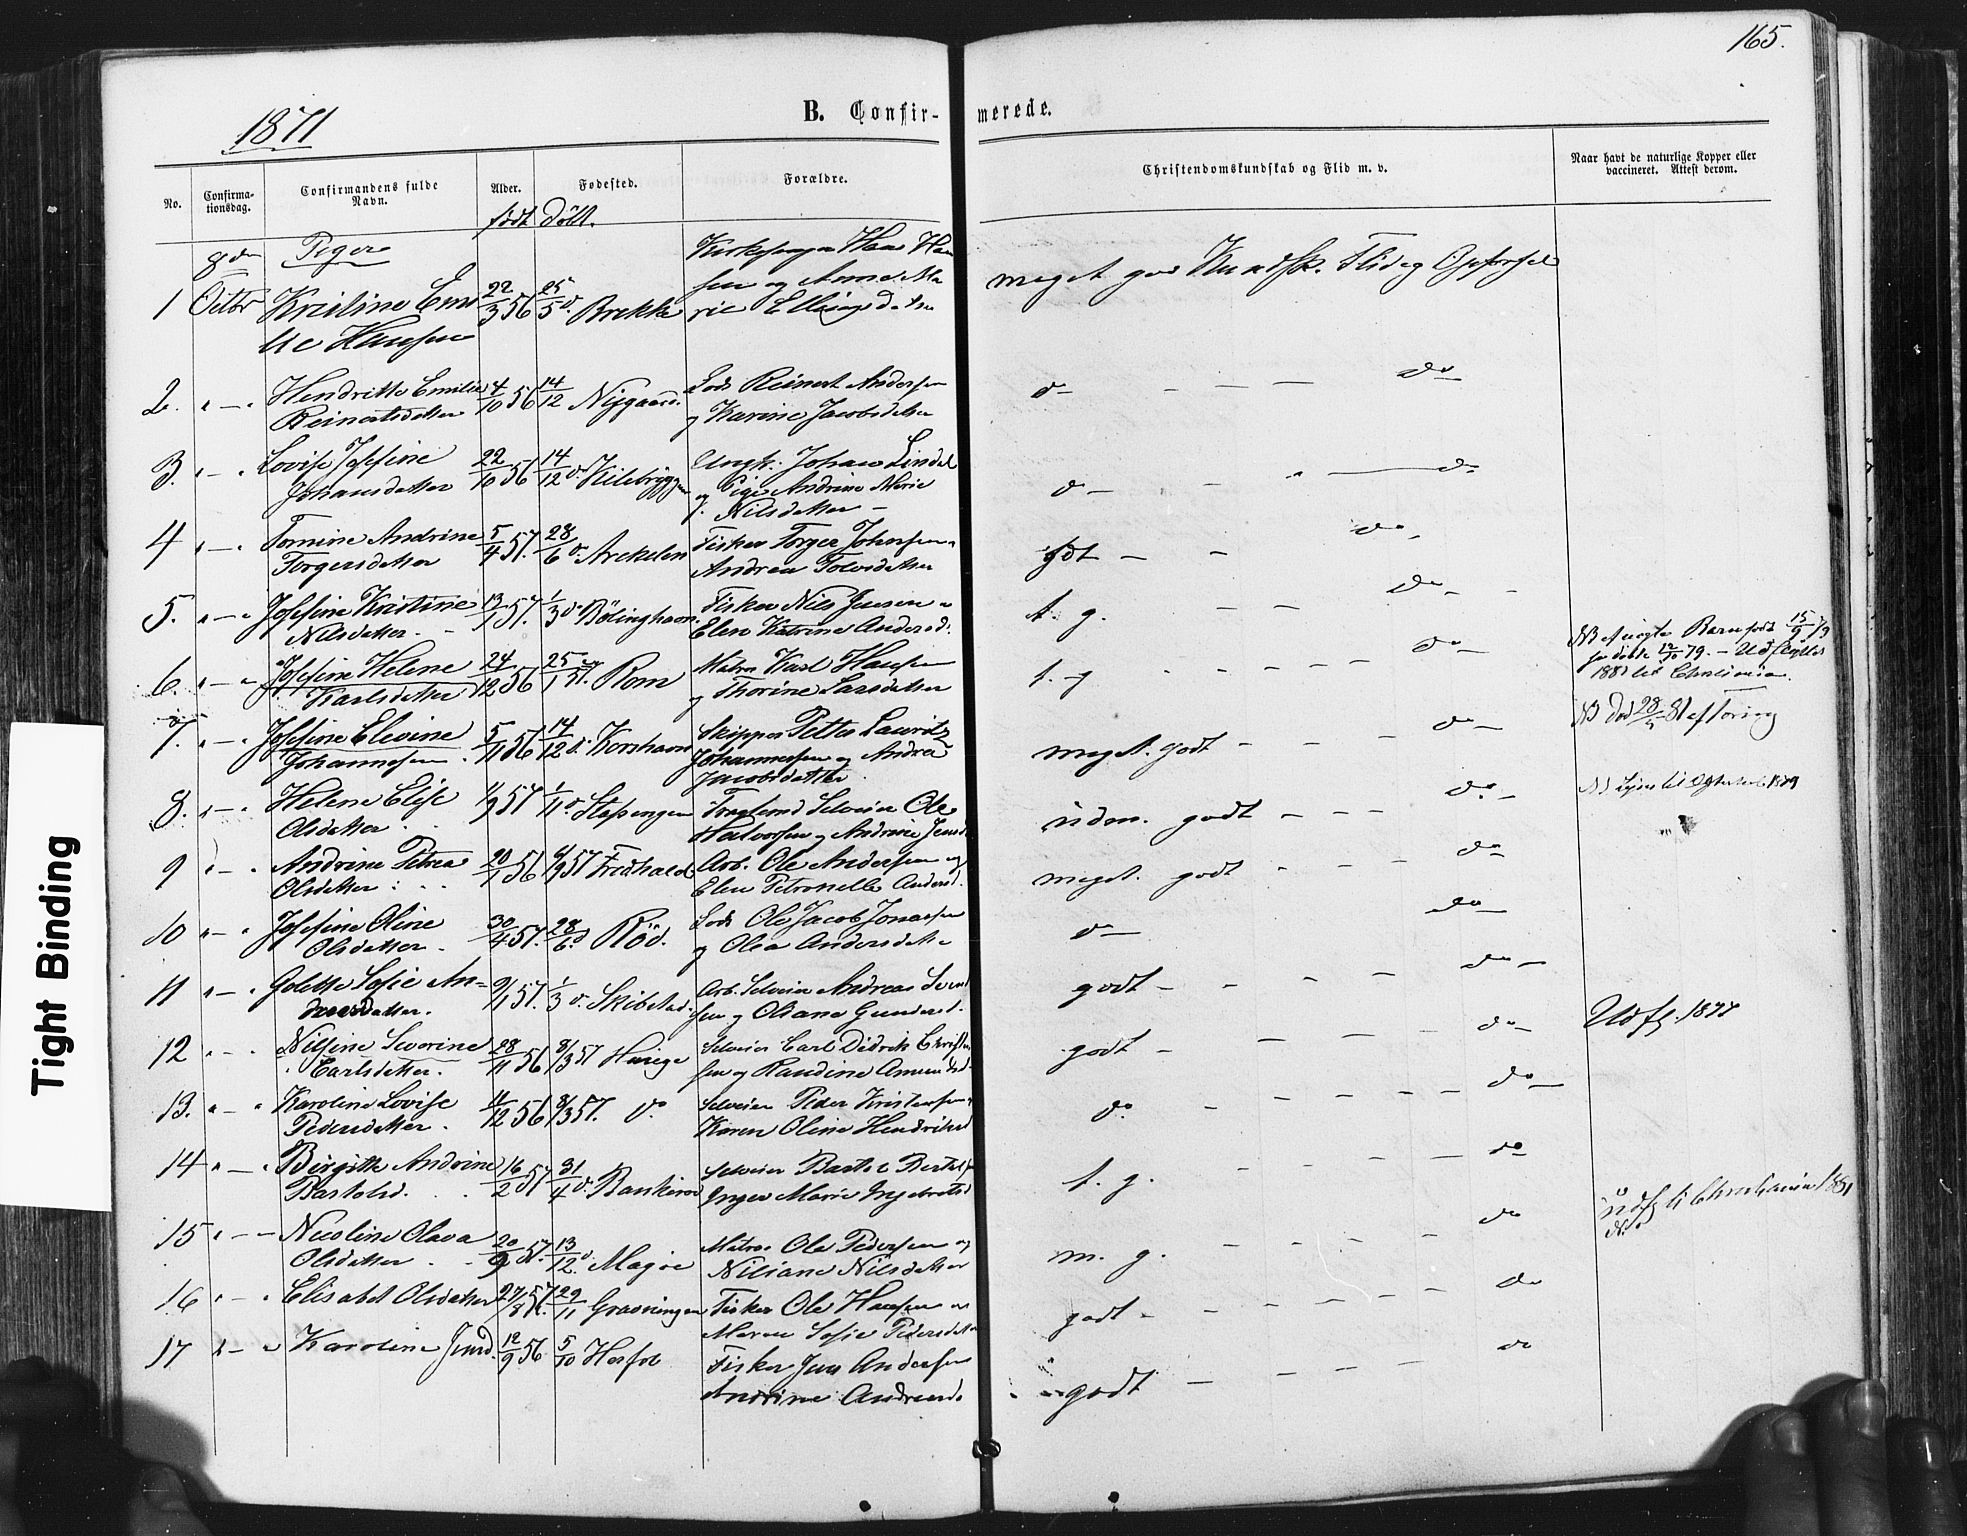 165.
1871
B. Confir-
merede.
No.
Confirma-
tionsdag.
Confirmandens fulde
Navn.
Alder.
Fødested.
Forældre.
Christendomskundskab og Flid m. v.
Naar havt de naturlige Kopper eller
vaccineret. Attest derom.
født
døbt.
8de
Piger
1 Octbr Kristine Emi
lie Hansen
22/3 56 25/5 d. Brekke
Hans Han
sen og Anne Ma
rie Ellingsdatter
meget god Kundsk. Flid og Opførsel
2. " — " Hendritte Emilie
Reinertsdatter
4/10 56 14/12 Nygaard.
Lods Reinert Andersen
og Karine Jacobsdatter
do — — — — do
3. " — " Lovise Josefine
Johansdatter
22/10 56 14/12 do Kilebryggen
Ungk. Johan Lindal
og Pige Andrine Marie
Nilsdatter —
do — — " — do
4 " — " Tomine Andrine
Torgersdatter
5/4 57. 28/6 d. Arekelen
Fisker Torger Johnsen
Andrea Tolvsdatter
godt — — do
5. " — " Josefine Kristine
Nilsdatter.
13/1 57. 1/3 do Bölinghavn.
Fisker Nils Jensen
Elen Katrine Andersd.
t. g. — — do — —
6. " — " Josefine Helene
Karlsdatter
24/12 56 25/1 57. Rom
Matros Karl Hansen
og Thorine Larsdatter
t. g — — — — do
NB uægte Barn født 15/9 79
døbt 12/10 79. — Udflyttet
1881 til Christiania.
7. " — " Josefine Elevine
Johannesen.
5/11 56 14/12 d. Korshavn
Skipper Petter Lauritz
Johannesen og Andrea
Jacobsdatter
meget. godt — — — do —
NB Død 28/
8. " — " Helene Elise
Olsdatter
1/9 57 1/11 d. Stafsengen
Selveier Ole
Halvorsen og Andrine
udm. godt — — — do —
9 " — " Andrine Petrea
Olsdatter
20/1 56 57 Fredhald
Arb. Ole Andersen og
Elen Petronelle Andersd.
meget. godt — — — do
10 " — " Josefine Oline
Olsdatter.
30/4 57. 28/6 d Röd.
Lods Ole Jacob Jonassen
og Olea Andersdatter
do — — — — do
11 " — " Golette Sofie An-
dreasdatter.
9/1 57. 1/3 d. Skibstad.
Arb. Selveier Andreas
sen og Oliane Gundersd.
godt — — — — do —
12 " — " Nilsine Severine
Carlsdatter.
28/11 56 8/3 57 Hauge
Selveier Carl Didrik
sen og Randine Amundsd.
godt — — — do —
Udfl. 1877
13. " — " Karoline Lovise
Pedersdatter.
11/12 56 8/3 57. do
Selveier Peder Kristensen
Karen Oline Hendriksd
do. — — — — — do —
14 " — " Birgitte Andrine
Bartolsd.
16/2 57 31/4 d. Bankerød
Selveier Bartol
Inger Marie Ingebretsd
t. g. — — — — do
15 " — " Nicoline Olava
Olsdatter
20/9 57. 13/12 d. Magöe
Matros Ole Pedersen og
Niliane Nilsdatter
m. g. — — — — do
til Christiania 1881
16 " — " Elisabet Olsdatter
27/8 57. 29/11 Graaningen
Fisker Ole Hansen
Maren Sofie Pedersdatter
godt — — — — — do
17 " — " Karoline Jensd.
12/9 56 5/10 Herföl
Fisker Jens Andersen
Andrine Andreasd.
godt — — — — do
Tight Binding